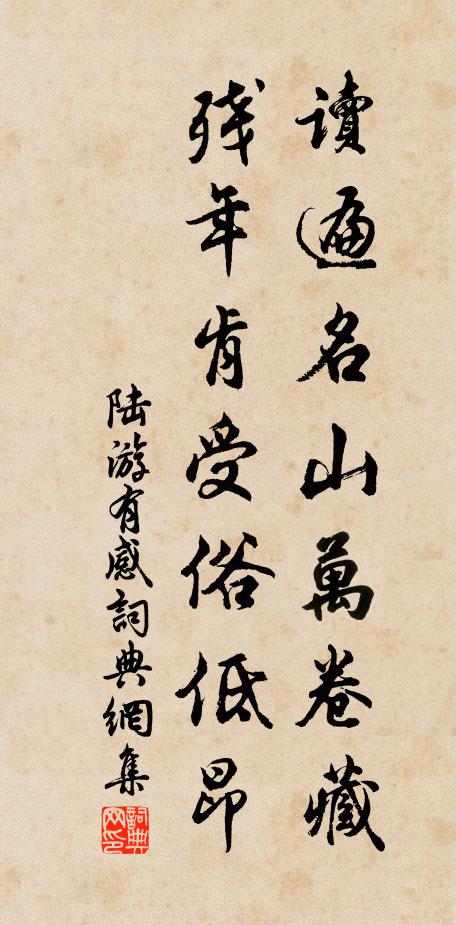 讀遍名山萬卷藏
殘年肯受俗低昂
陆游有感詞典網集
詞典网印